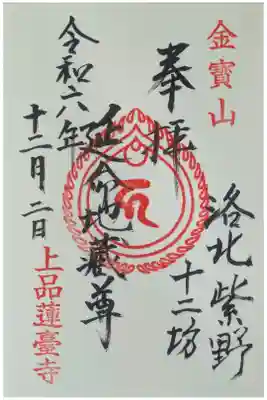 金寳山
奉拝
洛北紫野
十二坊
延命地蔵尊
令和六年
十二月二日
上品蓮臺寺